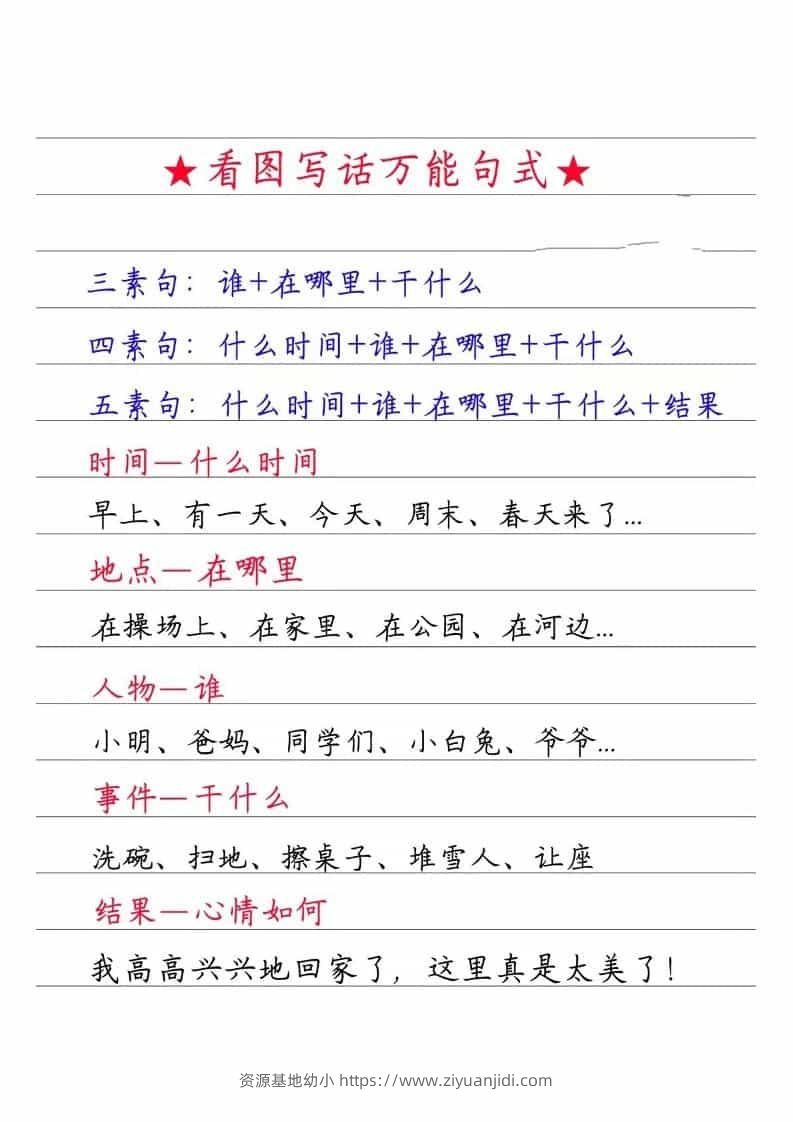 ★看图写话万能句式★
三素句：谁+在哪里+干什么
四素句：什么时间+谁+在哪里+干什么
五素句：什么时间+谁+在哪里+干什么+结果
时间—什么时间
早上、有一天、今天、周末、春天来了...
地点—在哪里
在操场上、在家里、在公园、在河边...
人物—谁
小明、爸妈、同学们、小白兔、爷爷...
事件—干什么
洗碗、扫地、擦桌子、堆雪人、让座
结果—心情如何
我高高兴兴地回家了，这里真是太美了！
资源基地幼小 https://www.ziyuanjidi.com